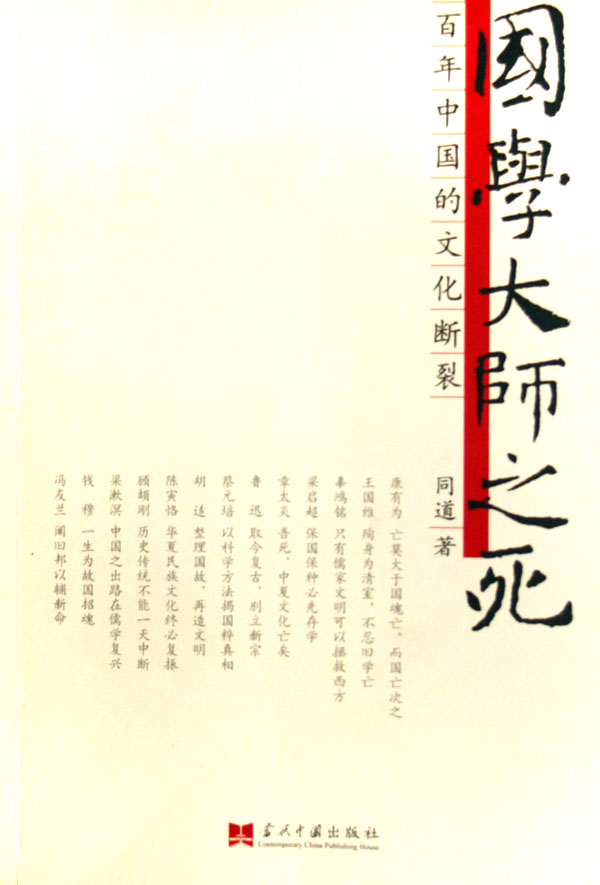 國學大師之死
百年中国的文化断裂
同道 著
康有为 亡莫大于国魂亡，而国亡次之
王国维 殉身为清室、不忍旧学亡
辜鸿铭 只有儒家文明可以拯救西方
梁启超 保国保种必先存学
章太炎 吾死，中夏文化亡矣
鲁迅 取今复古、别立新宗
蔡元培 以科学方法揭国粹真相
胡适 整理国故，再造文明
陈寅恪 华夏民族文化终必复振
顾颉刚 历史传统不能一天中断
梁漱溟 中国之出路在儒学复兴
钱穆 一生为故国招魂
冯友兰 阐旧邦以辅新命
当代中国出版社
Contemporary China Publishing House